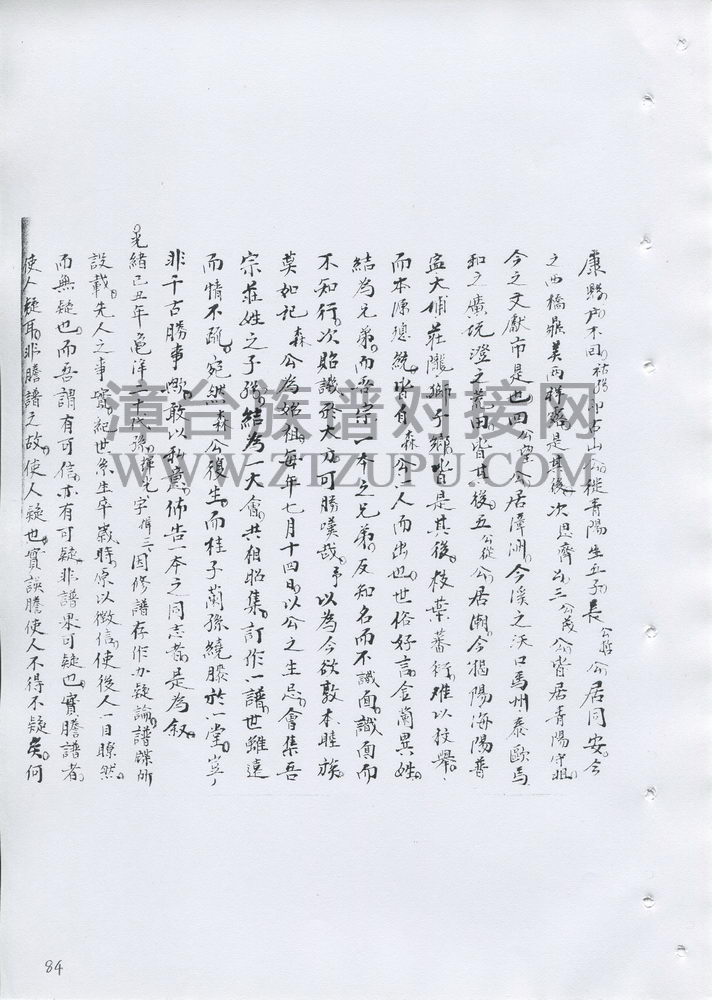 康熙 生五子長 公居同安今
之西橋 美西 是其後次 為三 公皆居青陽守祖
今之文獻市是也四公 公居漳洲今溪之沃口馬州泰
和之 坑澄之 田皆其後五公從公居潮今揭陽海陽普
孟大埔莊隴獅子鄉皆是其後枝葉蕃衍难以枚舉
而本源總統皆自森公一人而出也世俗好言金蘭異姓
結為兄弟而吾宗一本之兄弟反知名而不識面識面而
不知行次貽譏 大方可勝嘆哉 以為今欲敦本睦族
莫如記森公為始祖每年七月十四日以公之生忌會集吾
宗莊姓之子孫結為一大會共相昭集訂作一譜世雖遠
而情不疏宛然森公復生而桂子蘭孫繞膝於一堂豈
非千古勝事歟敢以私意佈告一本之同志者是為叙
光緒己丑年龜洋二十 代孫 光字 三因修譜存作办疑論譜牒所
設載先人之事 紀世系生卒歲時原以徵信使後人一目瞭然
而無疑也而吾謂有可信亦有可疑非譜果可疑也實謄譜者
使人疑耳非謄譜之故使人疑也實誤謄使人不得不疑矣何
漳台族谱对接网
WWW.ZTZUPU.COM
84